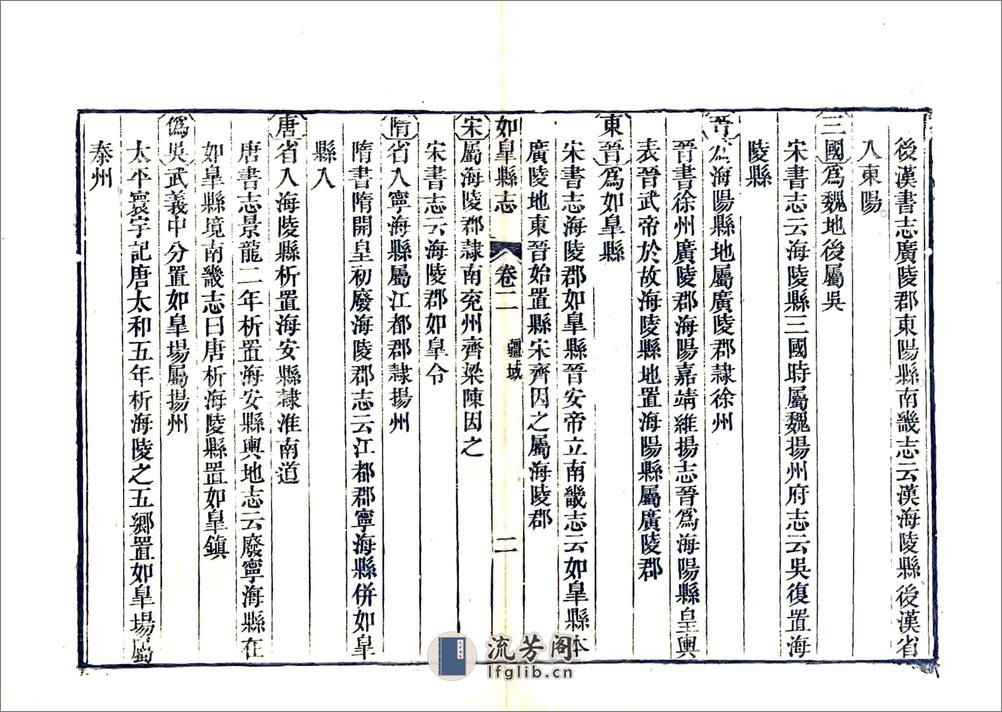 後漢書志廣陵郡東陽縣南畿志云漢海陵縣後漢省
入東陽
三國爲魏地後屬吳
宋書志云海陵縣三國時屬魏揚州府志云吳復置海
陵縣
晉爲海陽縣地屬廣陵郡隸徐州
晉書徐州廣陵郡海陽嘉靖維揚志晉爲海陽縣皇輿
表晉武帝於故海陵縣地置海陽縣屬廣陵郡
東晉爲如皐縣
宋書志海陵郡如皐縣晉安帝立南畿志云如皐縣本
廣陵地東晉始置縣宋齊因之屬海陵郡
如皐縣志 卷二 疆域 二
宋屬海陵郡隸南兖州齊梁陳因之
宋書志云海陵郡如皐令
隋省入寧海縣屬江都郡隸揚州
隋書隋開皇初廢海陵郡志云江都郡寧海縣併如皐
縣入
唐省入海陵縣析置海安縣隸淮南道
唐書志景龍二年析置海安縣輿地志云廢寧海縣在
如皐縣境南畿志曰唐析海陵縣置如皐鎮
僞吳武義中分置如皐場屬揚州
太平寰宇記唐太和五年析海陵之五鄉置如皐場屬
泰州
流芳阁
lfglib.cn